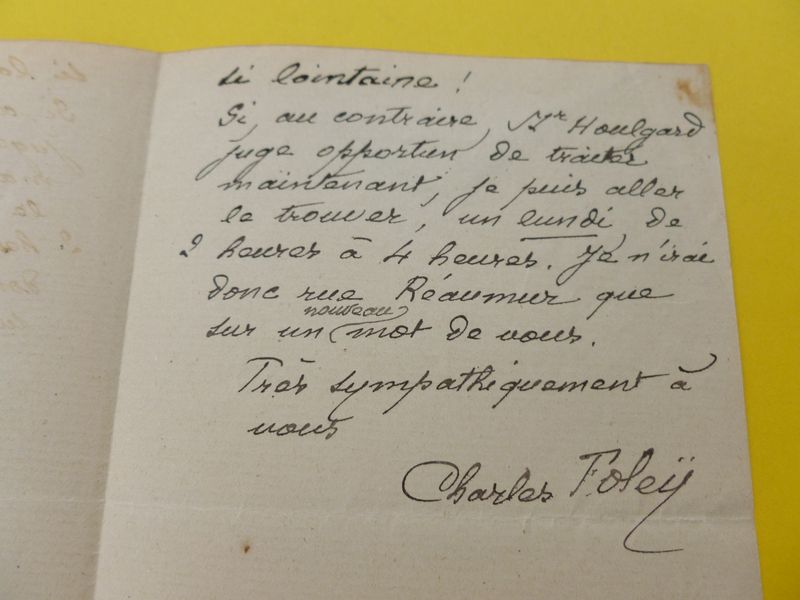 si lointaine !
Si, au contraire, Mr Houlgard
juge opportun de traiter
maintenant, je puis aller
le trouver, un lundi, de
2 heures à 4 heures. Je n'irai
donc rue Réaumur que
sur un nouveau mot de vous.
Très sympathiquement à
vous
Charles Foleÿ